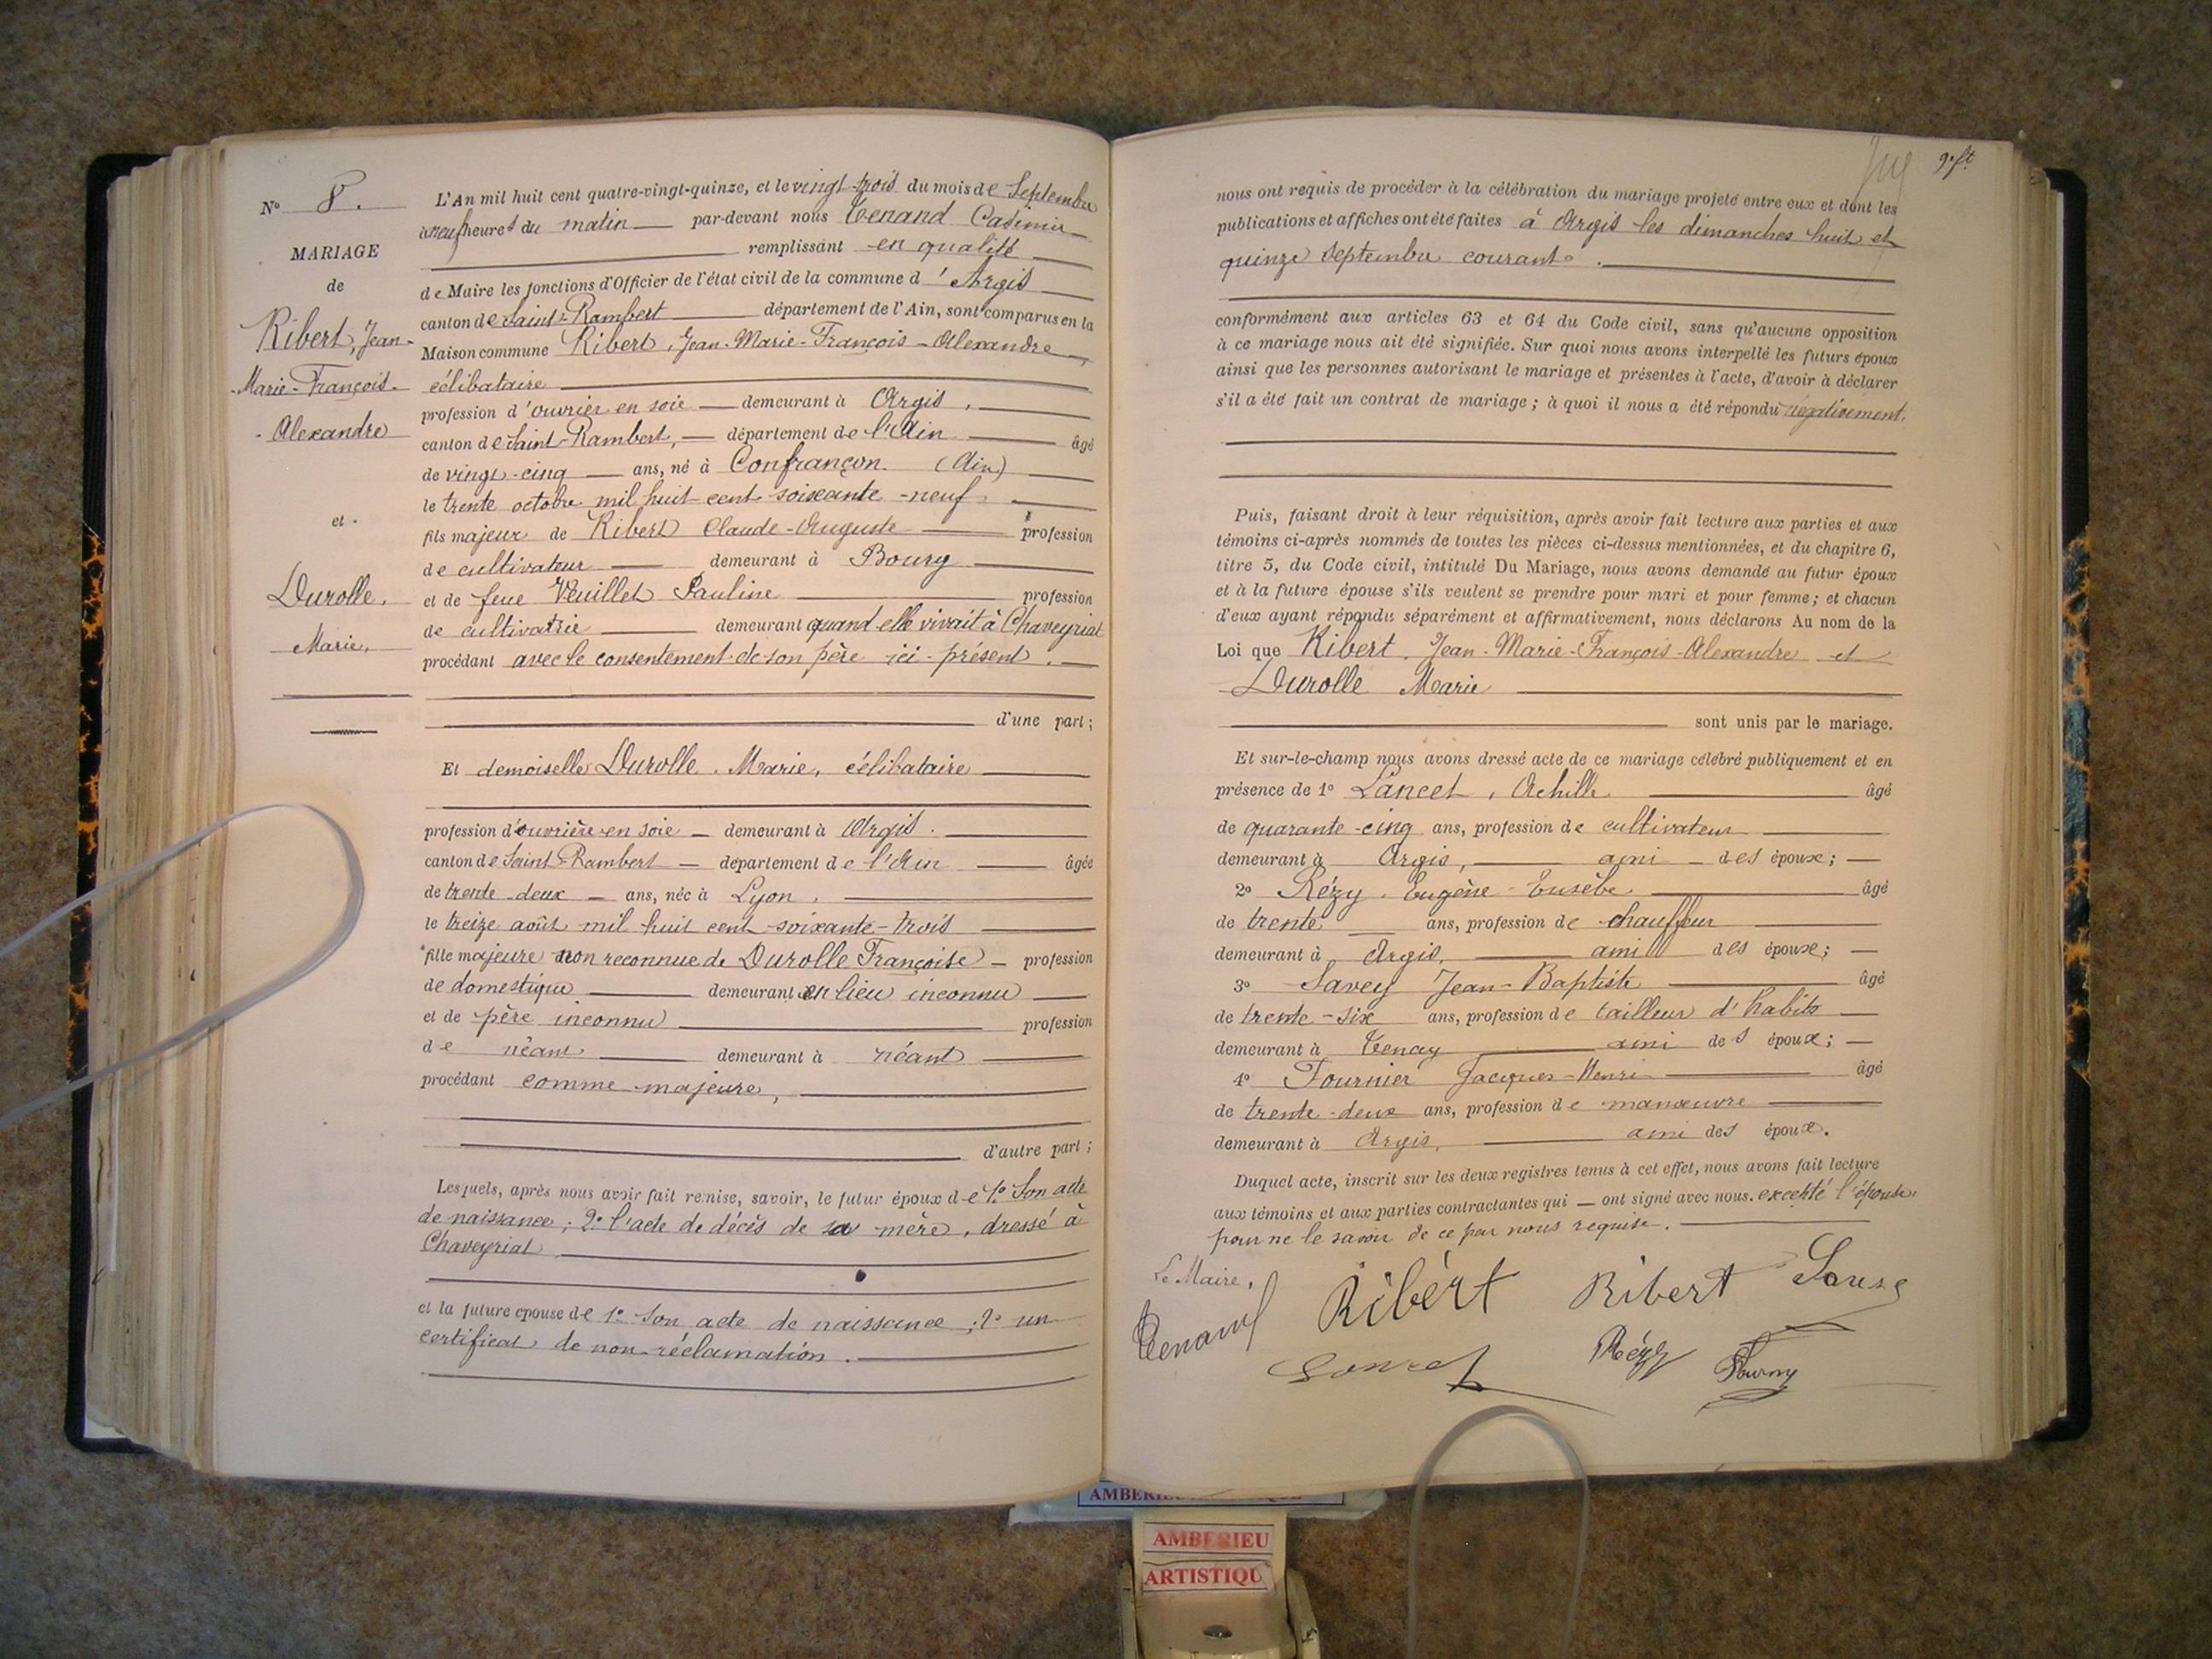 N° 8.
MARIAGE
de
Ribert, Jean-
-Marie-François-
-Alexandre
et
Durolle,
Marie,
L'An mil huit cent quatre-vingt-quinze, et le vingt-trois du mois de Septembre
à neuf heures du matin par-devant nous Tenand Casimir
remplissant en qualité
de Maire les fonctions d'Officier de l'état civil de la commune d'Argis
canton de Saint-Rambert département de l'Ain, sont comparus en la
Maison commune Ribert, Jean-Marie-François-Alexandre,
célibataire
profession d'ouvrier en soie demeurant à Argis,
canton de Saint-Rambert, département de l'Ain âgé
de vingt-cinq ans, né à Confrançon (Ain)
le trente octobre mil huit cent soixante-neuf
fils majeur de Ribert Claude-Auguste profession
de cultivateur demeurant à Bourg
et de feue Veuillet Pauline profession
de cultivatrice demeurant quand elle vivait à Chaveyriat
procédant avec le consentement de son père ici présent.
d'une part;
Et demoiselle Durolle, Marie, célibataire
profession d'ouvrière en soie demeurant à Argis.
canton de Saint-Rambert département de l'Ain âgée
de trente-deux ans, née à Lyon,
le treize août mil huit cent soixante-trois
fille majeure non reconnue de Durolle Françoise profession
de domestique demeurant en lieu inconnu
et de père inconnu profession
de néant demeurant à néant
procédant comme majeure,
d'autre part;
Lesquels, après nous avoir fait remise, savoir, le futur époux de 1° Son acte
de naissance; 2° l'acte de décès de sa mère, dressé à
Chaveyriat
et la future epouse de 1° Son acte de naissance; 2° un
certificat de non-réclamation.
9e ft
nous ont requis de procéder à la célébration du mariage projeté entre eux et dont les
publications et affiches ont été faites à Argis les dimanches huit et
quinze Septembre courant.
conformément aux articles 63 et 64 du Code civil, sans qu'aucune opposition
à ce mariage nous ait été signifiée. Sur quoi nous avons interpellé les futurs époux
ainsi que les personnes autorisant le mariage et présentes à l'acte, d'avoir à déclarer
s'il a été fait un contrat de mariage; à quoi il nous a été répondu négativement.
Puis, faisant droit à leur réquisition, après avoir fait lecture aux parties et aux
témoins ci-après nommés de toutes les pièces ci-dessus mentionnées, et du chapitre 6,
titre 5, du Code civil, intitulé Du Mariage, nous avons demandé au futur époux
et à la future épouse s'ils veulent se prendre pour mari et pour femme; et chacun
d'eux ayant répondu séparément et affirmativement, nous déclarons Au nom de la
Loi que Ribert, Jean-Marie-François-Alexandre et
Durolle Marie
sont unis par le mariage.
Et sur-le-champ nous avons dressé acte de ce mariage célébré publiquement et en
présence de 1° Lancet, Achille âgé
de quarante-cinq ans, profession de cultivateur
demeurant à Argis, ami des époux;
2° Rézy, Eugène-Eusèbe âgé
de trente ans, profession de chauffeur
demeurant à Argis, ami des époux;
3° Savey Jean-Baptiste âgé
de trente-six ans, profession de tailleur d'habits
demeurant à Tenay ami des époux;
4° Fournier Jacques-Henri âgé
de trente-deux ans, profession de manœuvre
demeurant à Argis, ami des époux.
Duquel acte, inscrit sur les deux registres tenus à cet effet, nous avons fait lecture
aux témoins et aux parties contractantes qui ont signé avec nous. excepté l'épouse
pour ne le savoir de ce par nous requise.
Le Maire,
Tenand Ribert Ribert
Rézy
AMBERIEU
ARTISTIQU